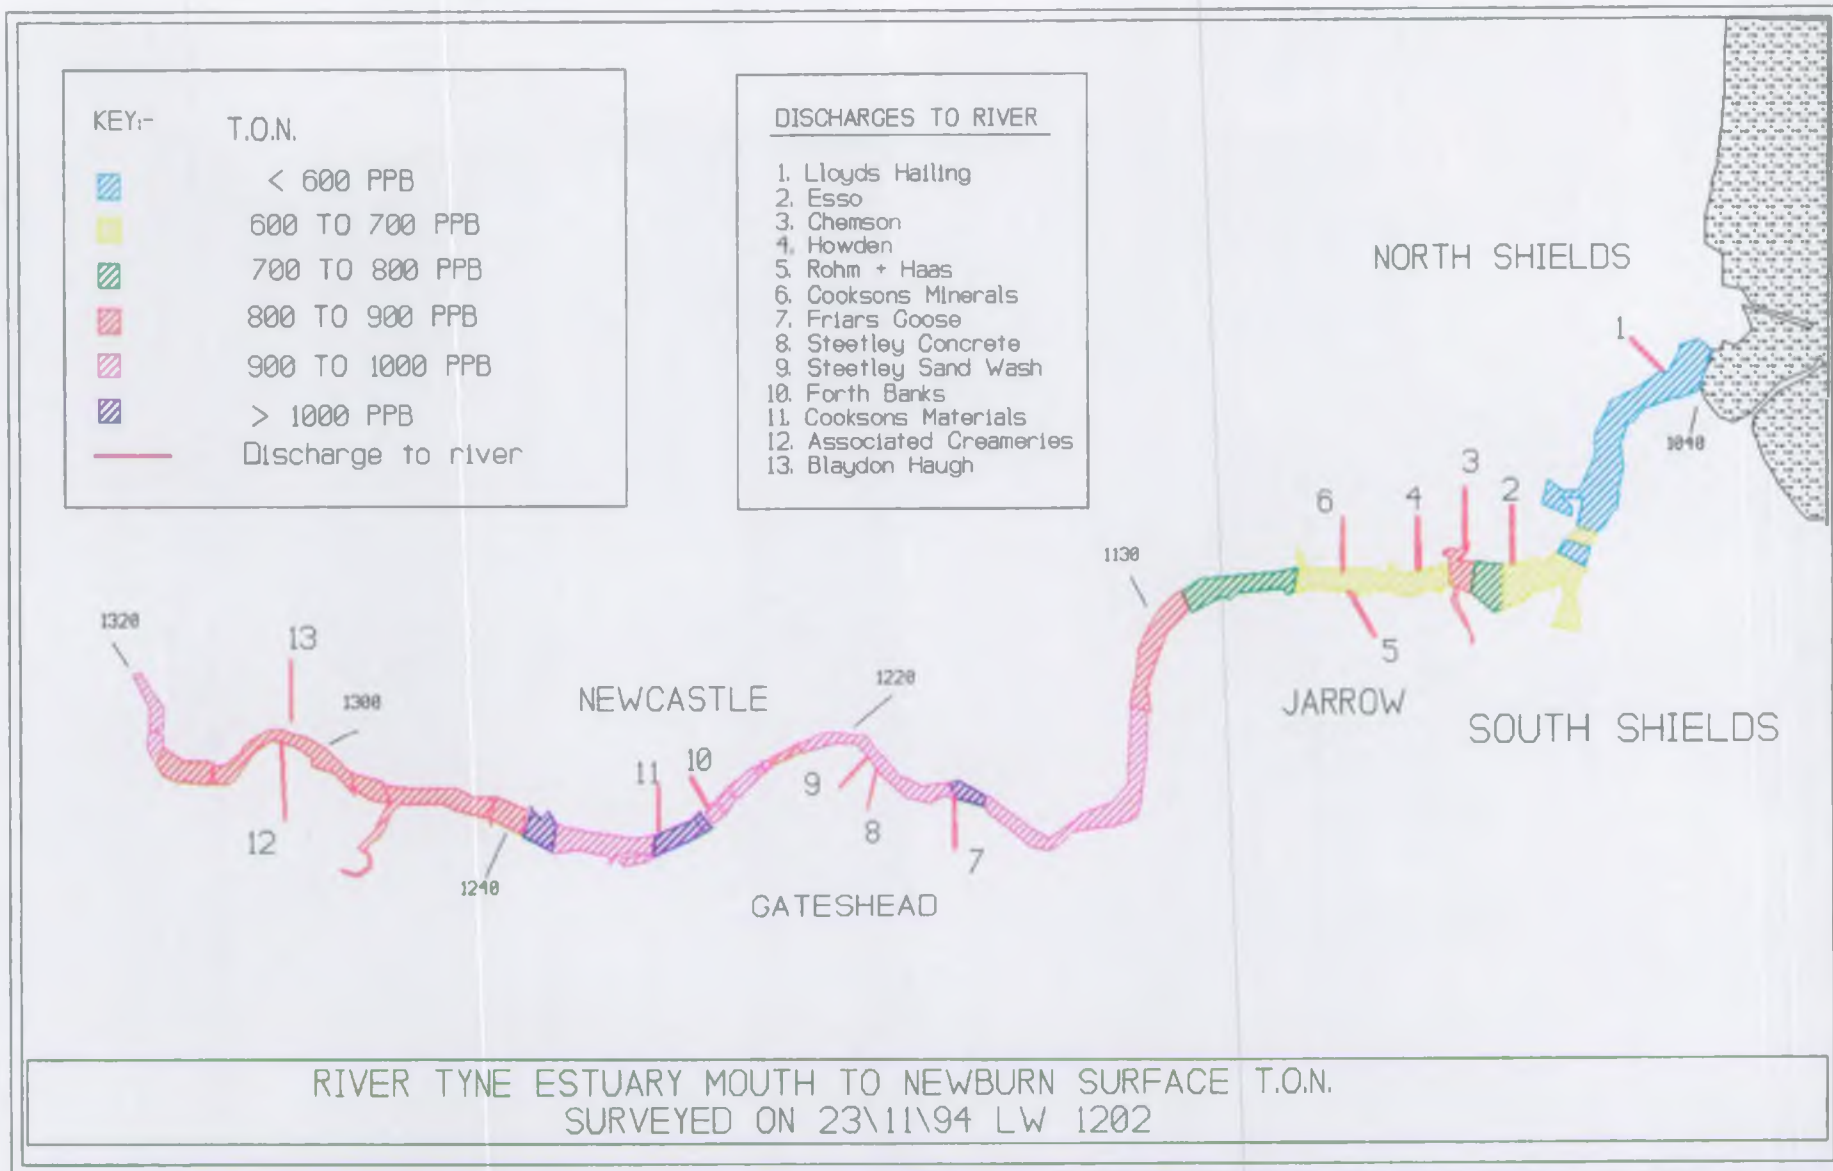 KEY:-
T.O.N.
< 600 PPB
600 TO 700 PPB
700 TO 800 PPB
800 TO 900 PPB
900 TO 1000 PPB
> 1000 PPB
Discharge to river
DISCHARGES TO RIVER
1. Lloyds Hailing
2. Esso
3. Chemson
4. Howden
5. Rohm + Haas
6. Cooksons Minerals
7. Friars Goose
8. Steetley Concrete
9. Steetley Sand Wash
10. Forth Banks
11. Cooksons Materials
12. Associated Creameries
13. Blaydon Haugh
NORTH SHIELDS
1
1040
3
2
6
4
1130
5
JARROW
SOUTH SHIELDS
1320
13
1300
NEWCASTLE
1220
11
10
9
12
8
7
1240
GATESHEAD
RIVER TYNE ESTUARY MOUTH TO NEWBURN SURFACE T.O.N.
SURVEYED ON 23\11\94 LW 1202